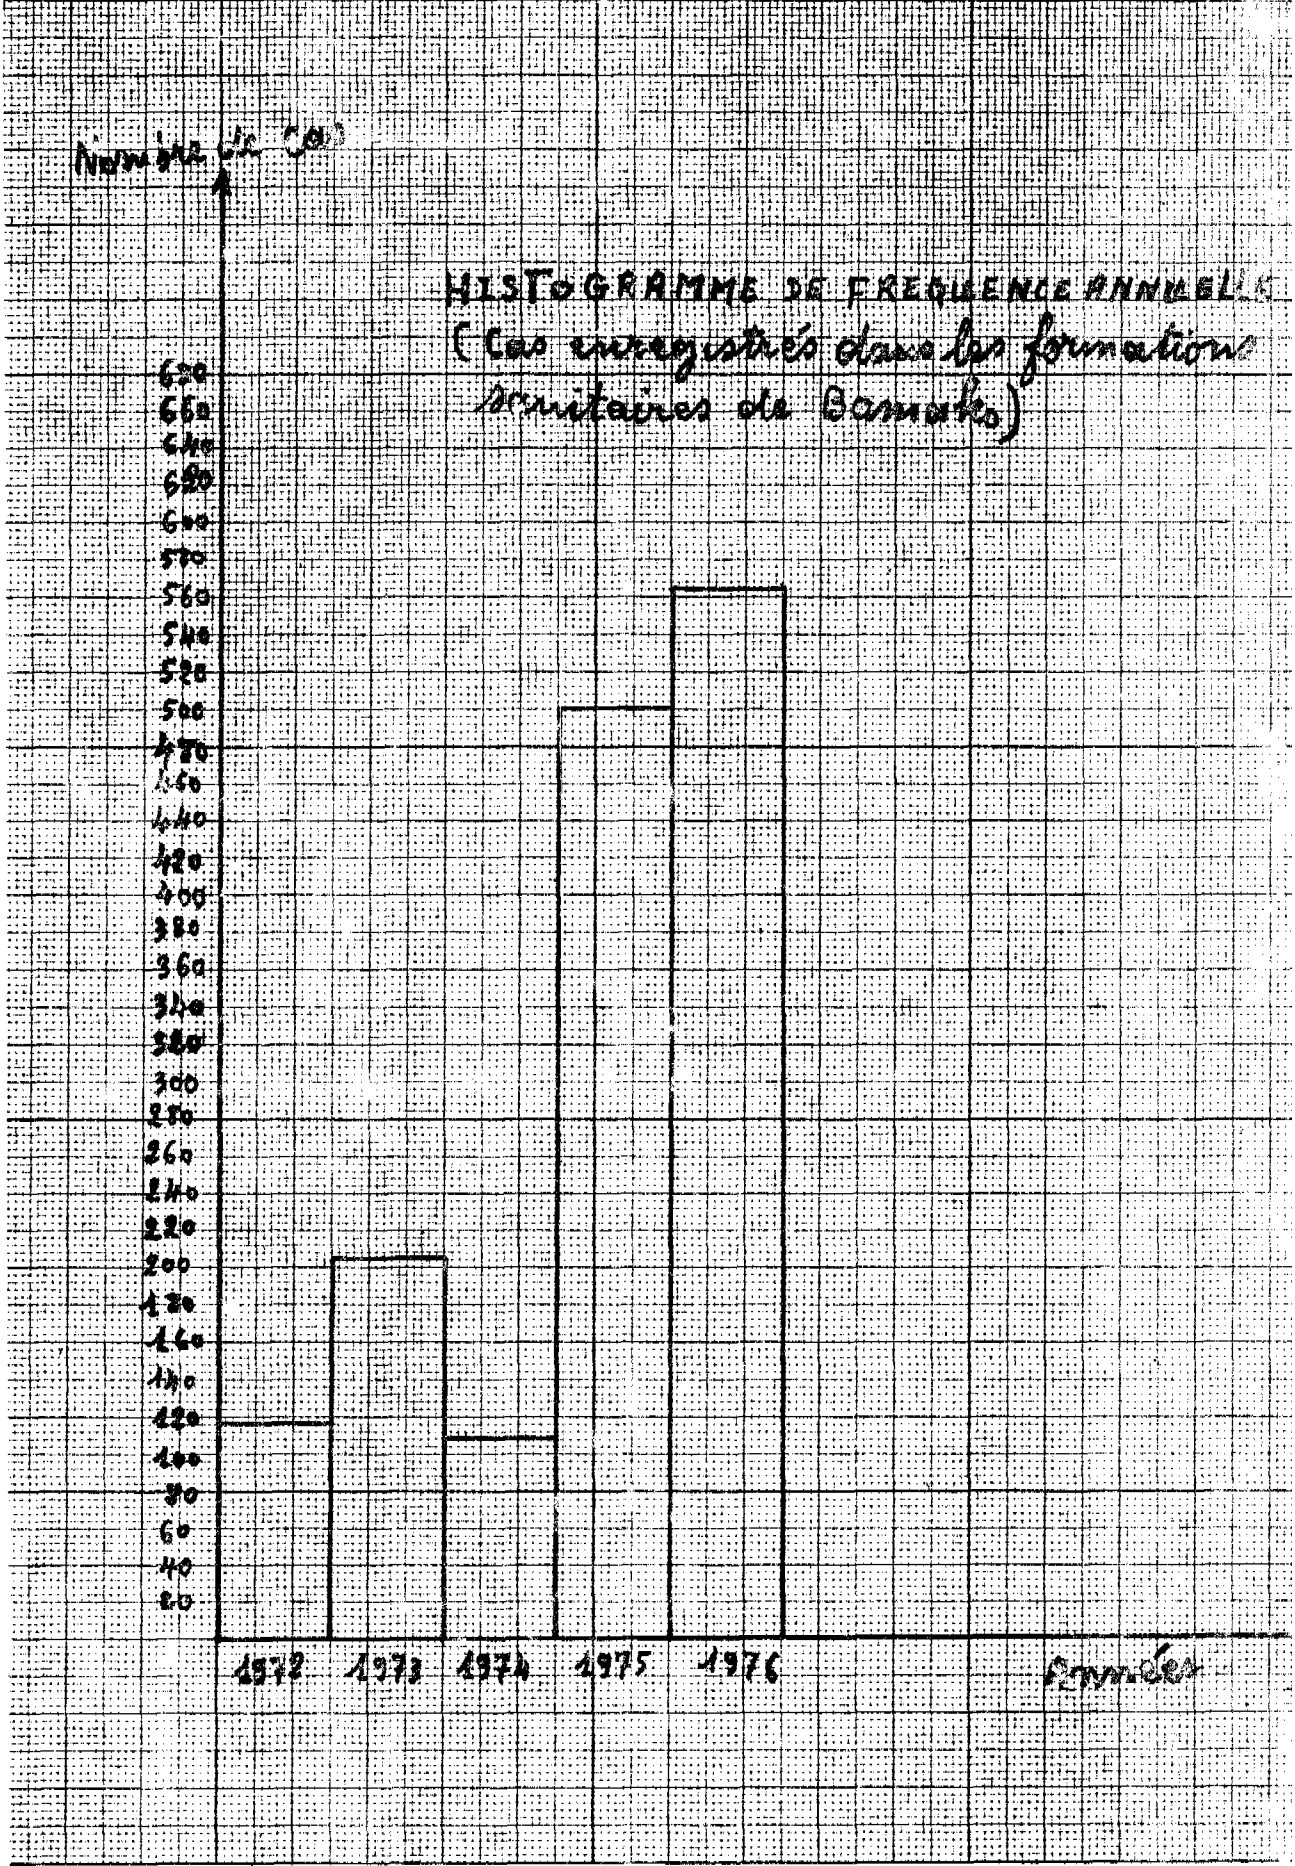 Nombre de Cas
HISTOGRAMME DE FREQUENCE ANNUELLE
(Cas enregistrés dans les formations
sanitaires de Bamako)
680
660
640
620
600
580
560
540
520
500
480
460
440
420
400
380
360
340
320
300
280
260
240
220
200
180
160
140
120
100
80
60
40
20
1972 1973 1974 1975 1976 Années